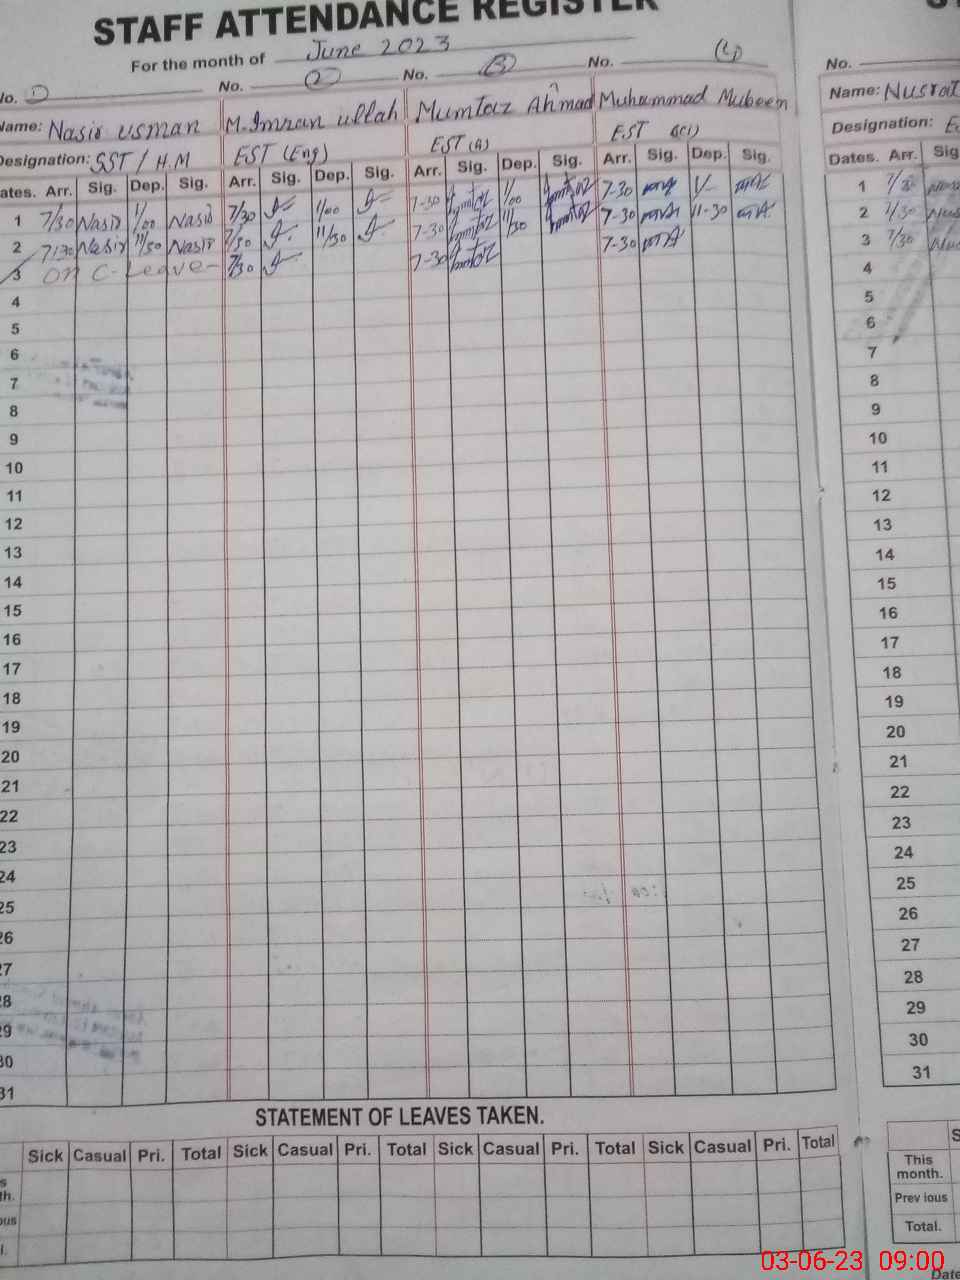 STAFF ATTENDANCE REGISTER
For the month of June 2023
No. 1 No. 2 No. 3 No. 4 No.
Name: Nasir usman M.Imran ullah Mumtaz Ahmad Muhammad Mubeen Name: Nusrat
Designation: SST / H.M EST (Eng) EST (A) EST Designation:
Dates. Arr. Sig. Dep. Sig. Arr. Sig. Dep. Sig. Arr. Sig. Dep. Sig. Arr. Sig. Dep. Sig. Dates. Arr. Sig
1 7/30 Nasir 1/00 Nasir 7/30 1/00 7-30 1/00 7-30 1/- 1 7/30
2 7/30 Nasir 11/30 Nasir 7/30 11/30 7-30 11/30 7-30 11-30 2 7/30
3 On C-Leave- 7/30 7-30 7-30 3 7/30
4 4
5 5
6 6
7 7
8 8
9 9
10 10
11 11
12 12
13 13
14 14
15 15
16 16
17 17
18 18
19 19
20 20
21 21
22 22
23 23
24 24
25 25
26 26
27 27
28 28
29 29
30 30
31 31
STATEMENT OF LEAVES TAKEN.
Sick Casual Pri. Total Sick Casual Pri. Total Sick Casual Pri. Total Sick Casual Pri. Total
This month.
Prev ious
Total.
03-06-23 09:00
Date